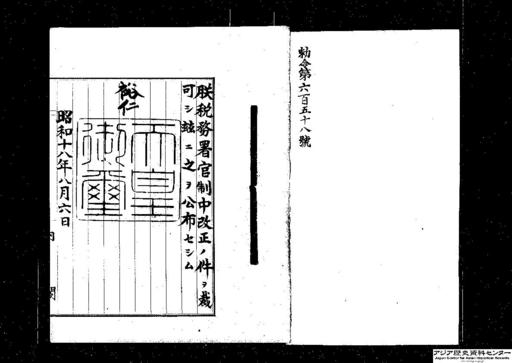 勅令第六百五十八號
朕税務署官制中改正ノ件ヲ裁
可シ玆ニ之ヲ公布セシム
裕仁
天皇
御璽
昭和十八年八月六日
内閣
アジア歴史資料センター
Japan Center for Asian Historical Records